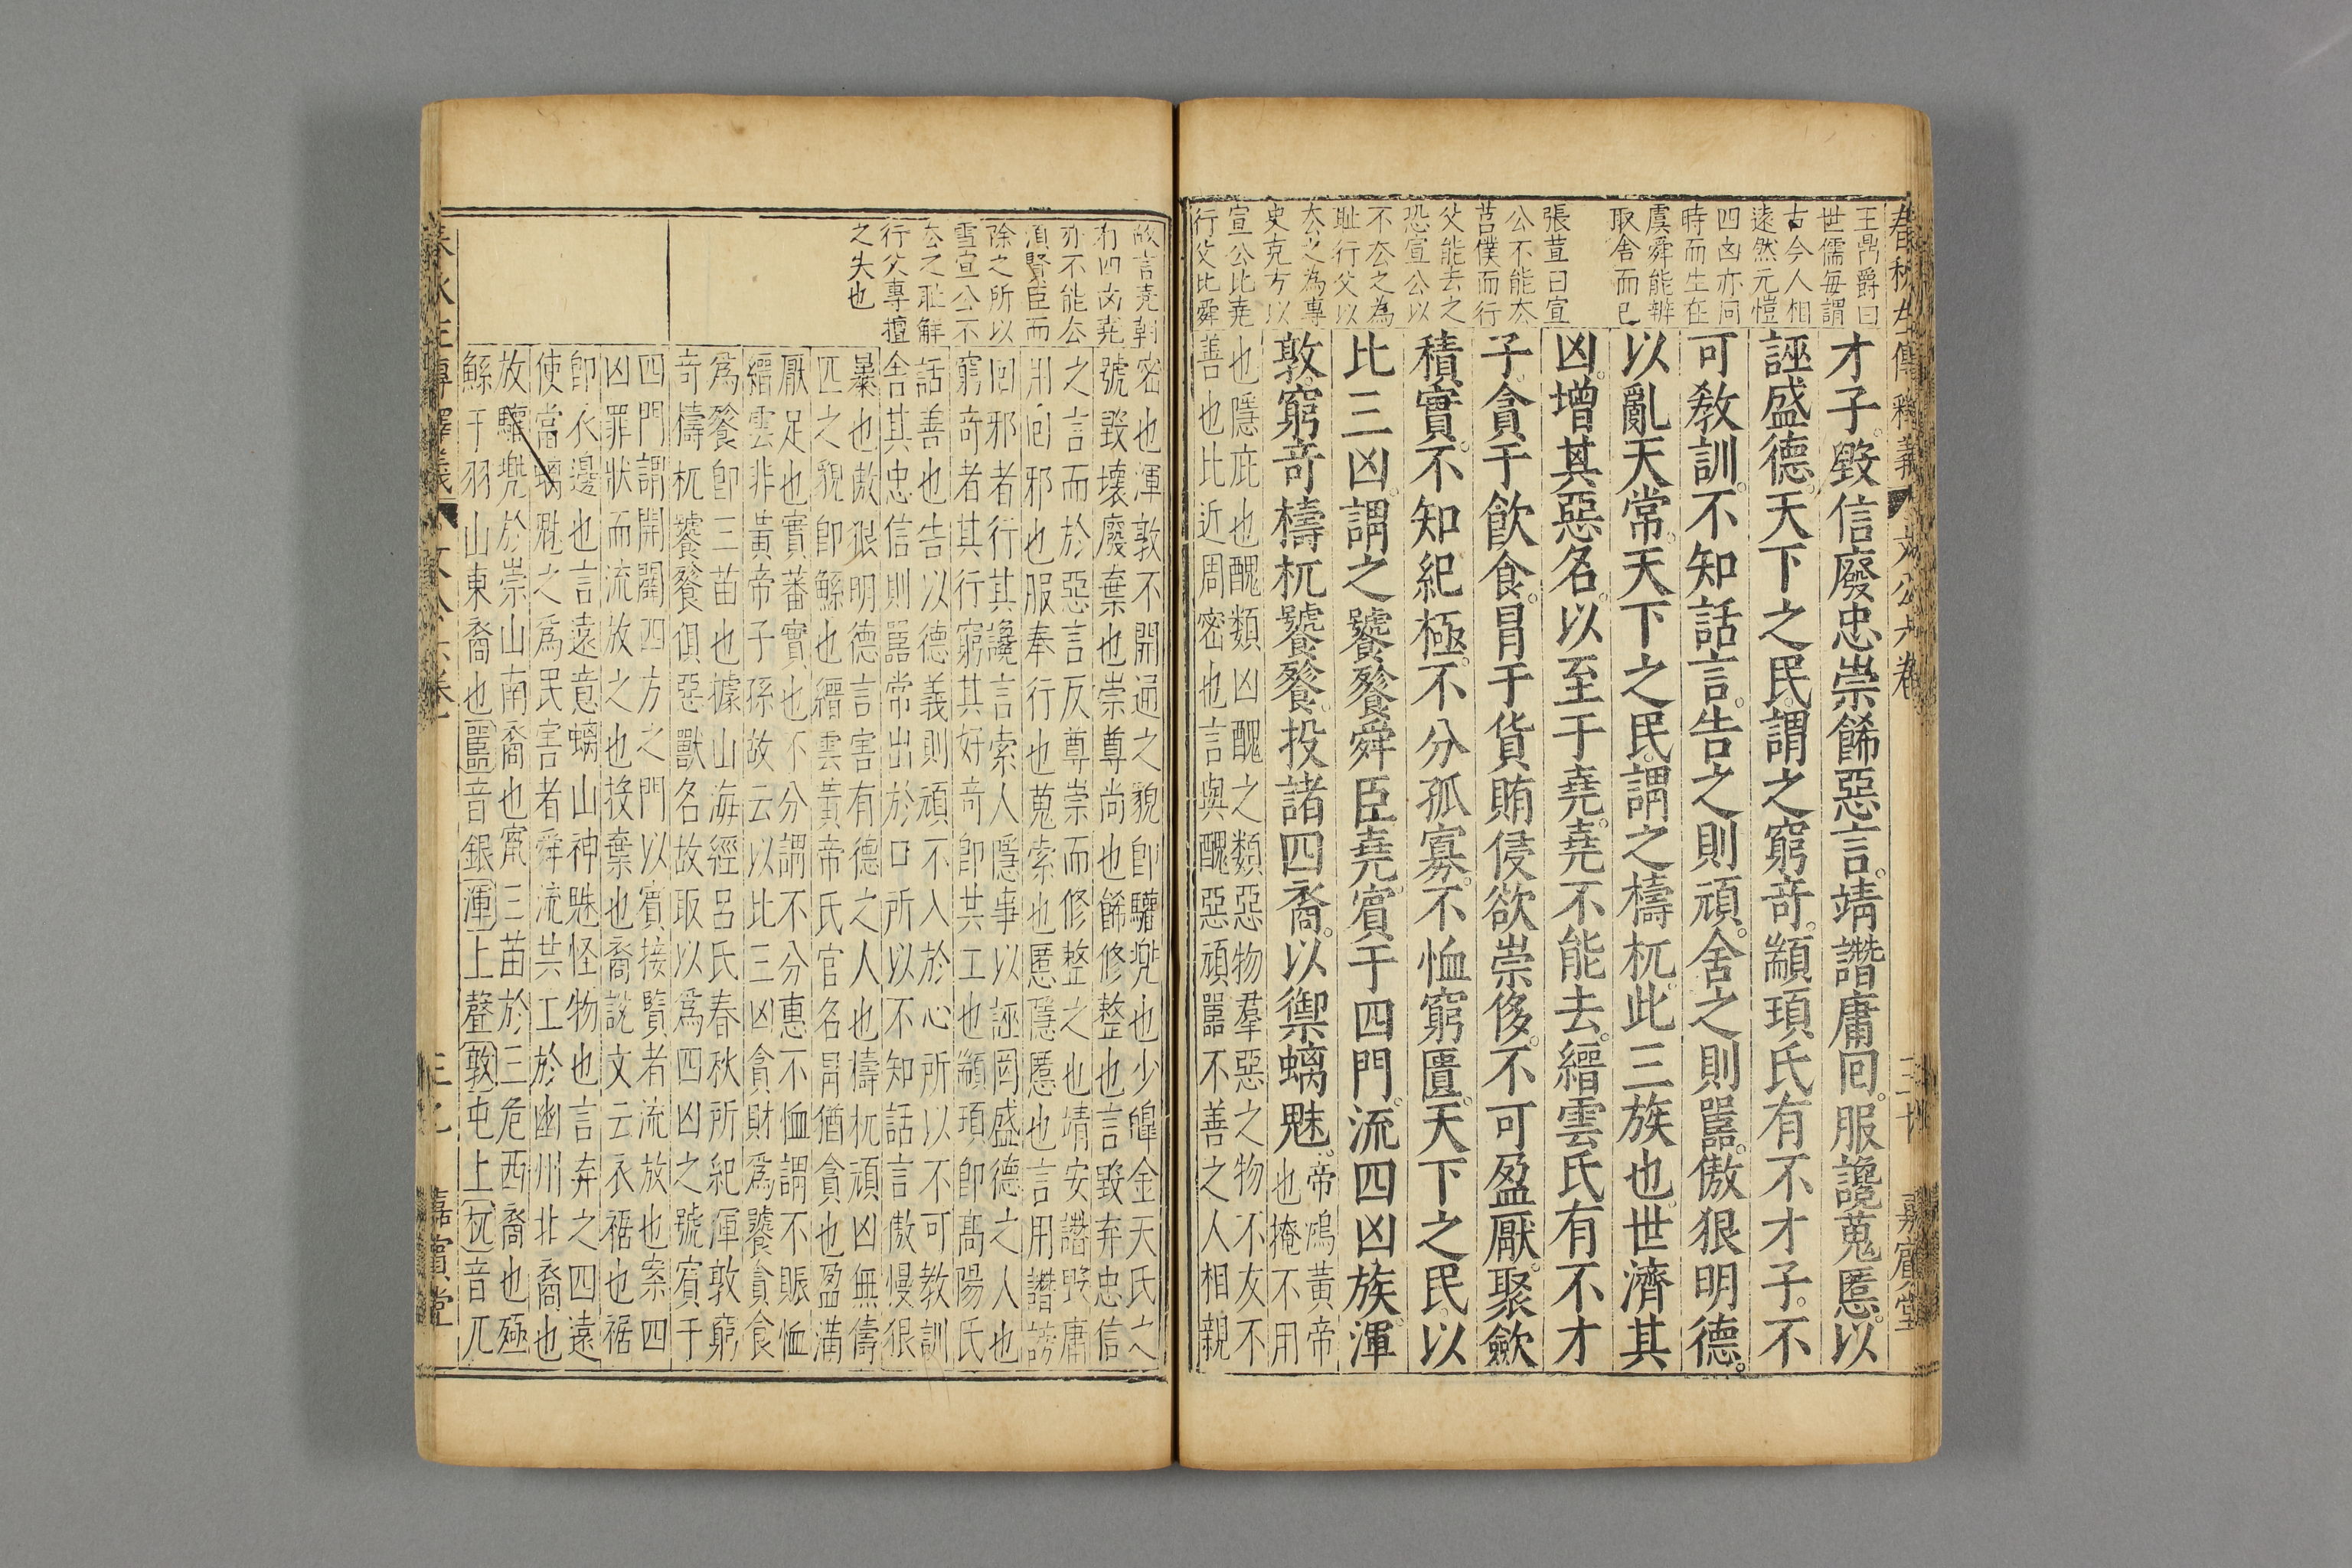 春秋左傳釋義
文公六卷
三十
嘉賓堂
王鼎爵曰
世儒每謂
古今人相
遠然元愷
四凶亦同
時而生在
虞舜能辨
取舍而已
張萱曰宣
公不能去
莒僕而行
父能去之
恐宣公以
不去之為
耻行父以
去之為專
史克方以
宣公比堯
行父比舜
才子毀信廢忠崇飾惡言靖譖庸回服讒蒐慝以
誣盛德天下之民謂之窮奇顓頊氏有不才子不
可敎訓不知話言告之則頑舍之則嚚傲狠明德
以亂天常天下之民謂之檮杌此三族也世濟其
凶增其惡名以至于堯堯不能去縉雲氏有不才
子貪于飮食冐于貨賄侵欲崇侈不可盈厭聚歛
積實不知紀極不分孤寡不恤窮匱天下之民以
比三凶謂之饕餮舜臣堯賔于四門流四凶族渾
敦窮奇檮杌饕餮投諸四裔以禦螭魅
帝鴻黃帝
也掩不用
也隱庇也醜類凶醜之類惡物羣惡之物不友不
善也比近周密也言與醜惡頑嚚不善之人相親
故言堯朝
有四凶堯
亦不能去
須賢臣而
除之所以
雪宣公不
去之耻解
行父專擅
之失也
密也渾敦不開通之貌卽驩兠也少皥金天氏之
號毀壞廢棄也崇尊尚也飾修整也言毀弃忠信
之言而於惡言反尊崇而修整之也靖安譖毀庸
用回邪也服奉行也蒐索也慝隱慝也言用譖謗
回邪者行其讒言索人隱事以誣罔盛德之人也
窮奇者其行窮其好奇卽共工也顓頊卽髙陽氏
話善也告以德義則頑不入於心所以不可教訓
舎其忠信則嚚常出於口所以不知話言傲慢狠
暴也傲狠明德言害有德之人也檮杌頑凶無儔
匹之貌卽鯀也縉雲黃帝氏官名冐猶貪也盈滿
厭足也實蕃實也不分謂不分惠不恤謂不賑恤
縉雲非黃帝子孫故云以比三凶貪財爲饕貪食
爲餮卽三苗也據山海經吕氏春秋所紀渾敦窮
奇檮杌饕餮俱惡獸名故取以爲四凶之號賔于
四門謂開闢四方之門以賓接賢者流放也案四
凶罪狀而流放之也投棄也裔說文云衣裾也裾
卽衣邊也言遠意螭山神魅怪物也言弃之四遠
使當螭魅之爲民害者舜流共工於幽州北裔也
放驩兠於崇山南裔也竄三苗於三危西裔也殛
鯀于羽山東裔也嚚音銀渾上聲敦屯上杌音兀
嘉賓堂